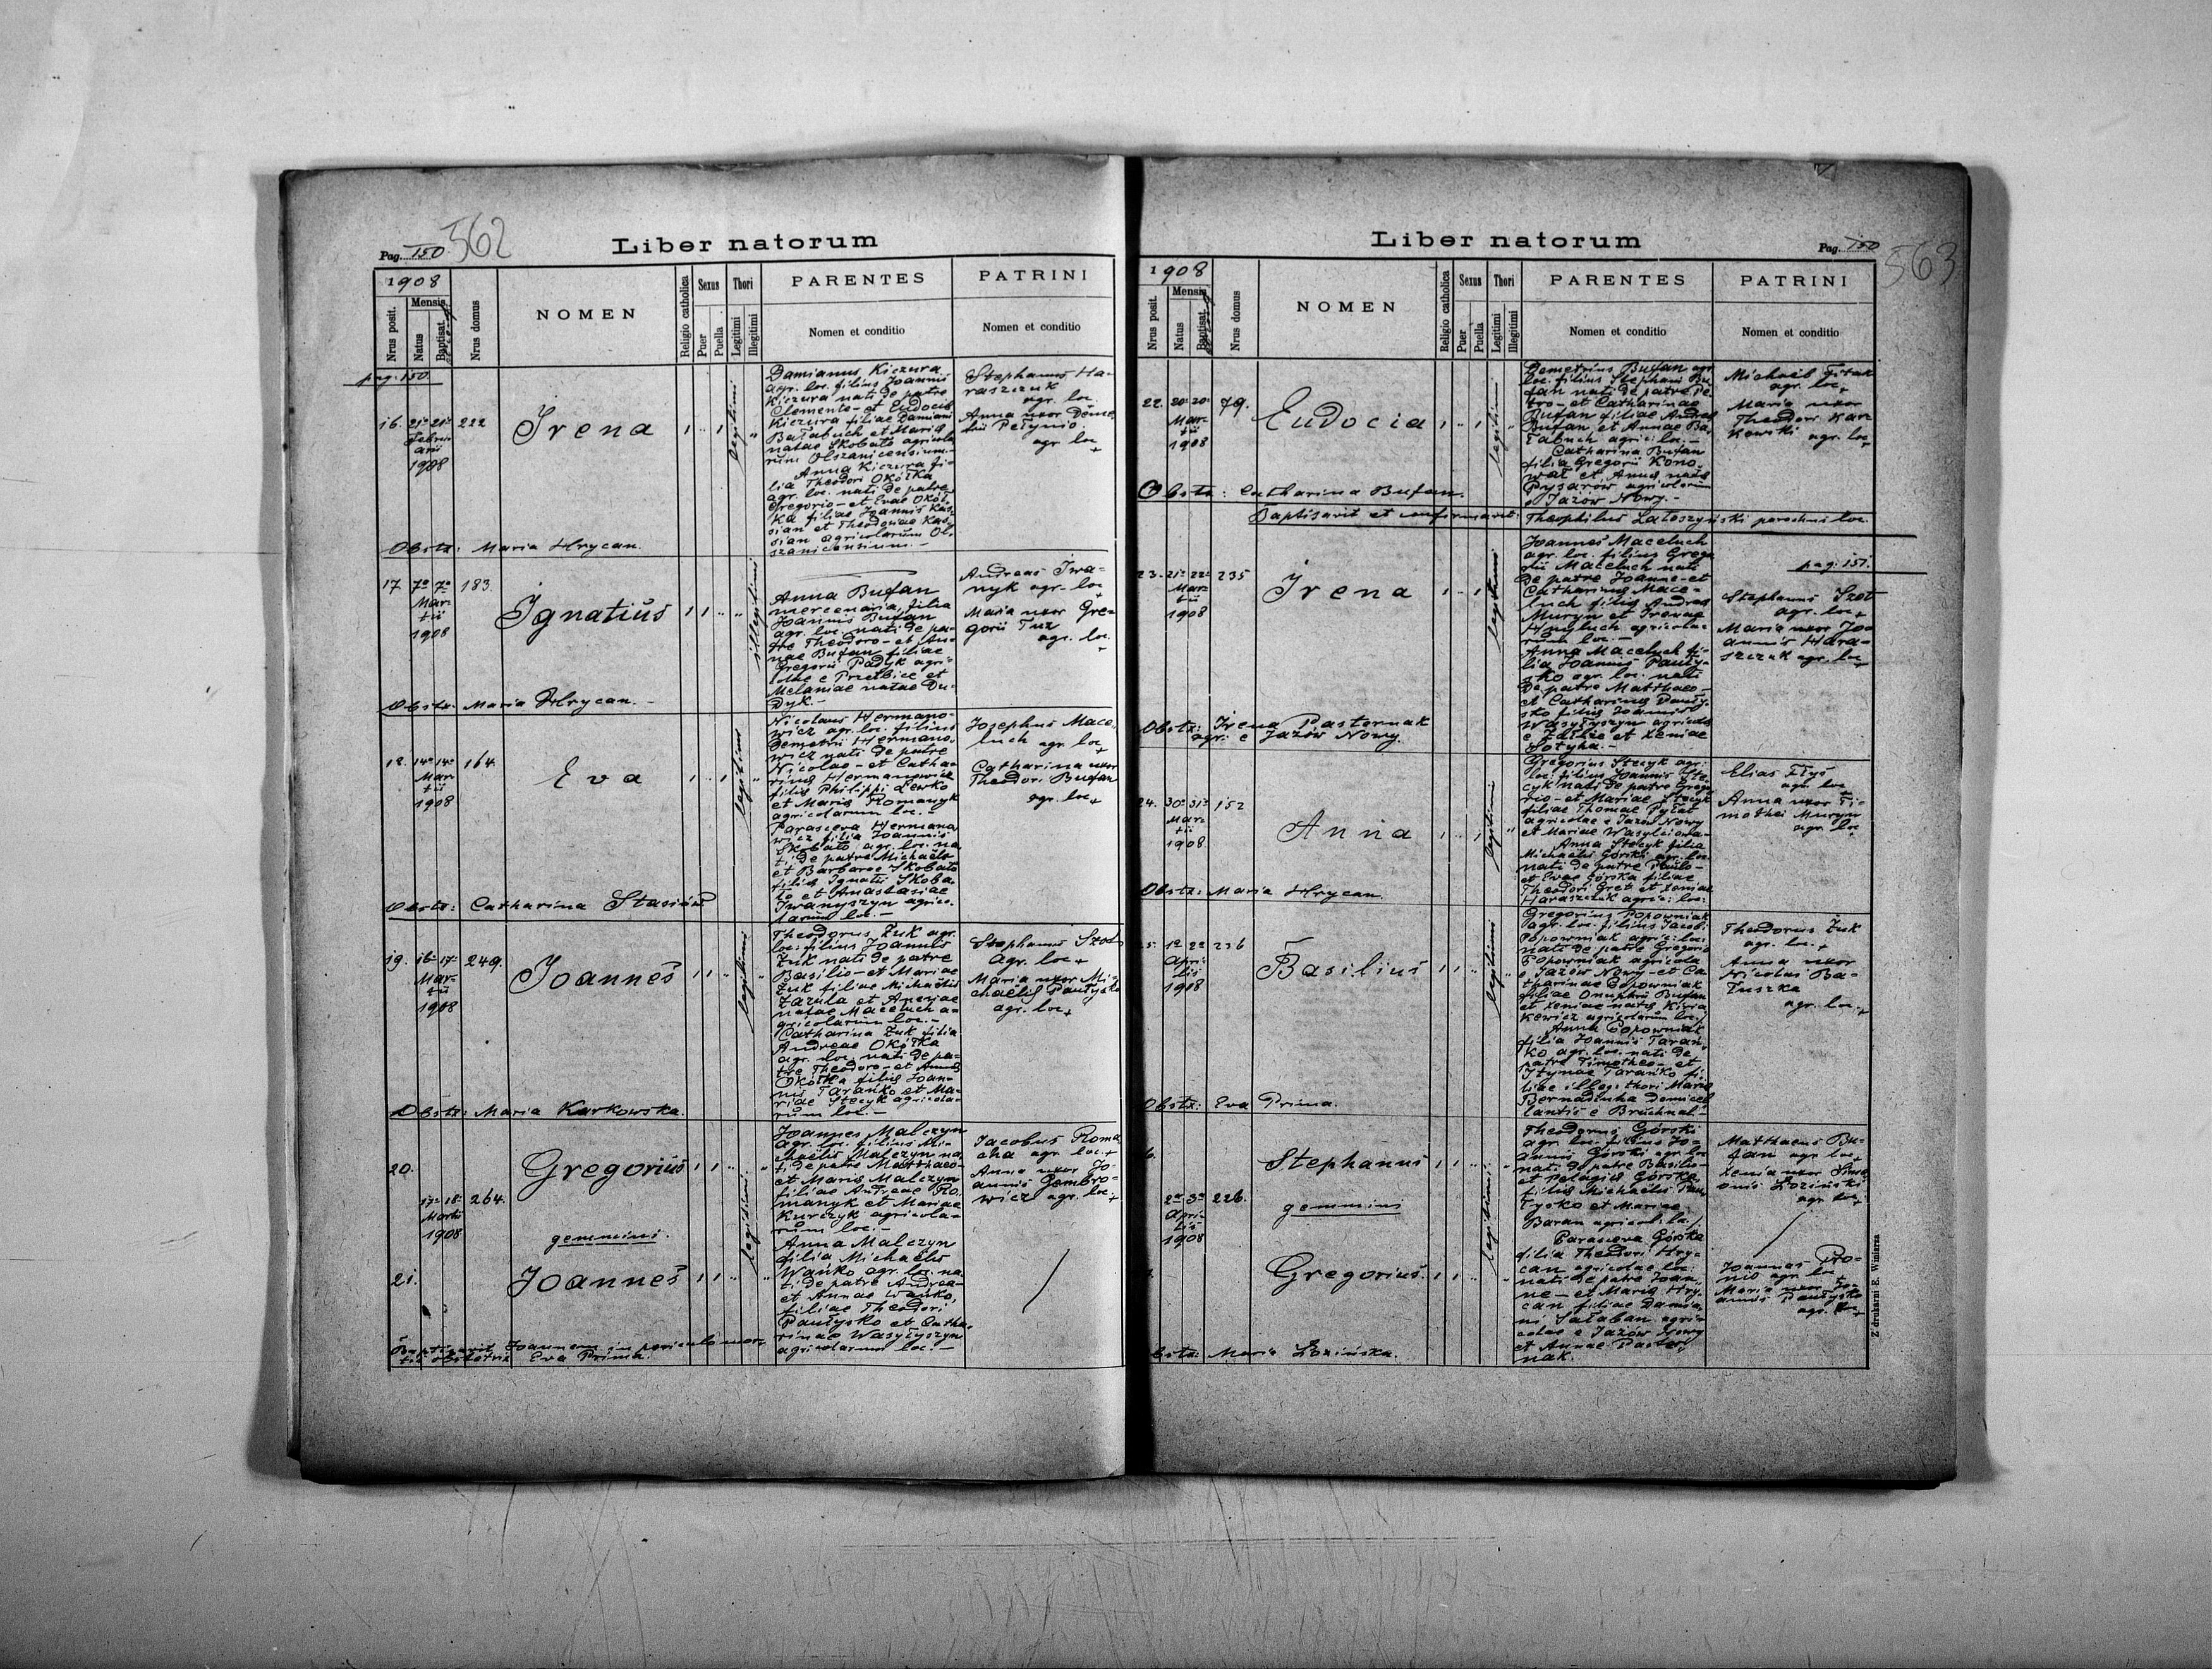 562
Liber natorum
Pag. 150
1908
Nrus posit.
Mensis
Natus
Baptisat.
Nrus domus
NOMEN
Religio catholica
Sexus
Puer
Puella
Thori
Legitimi
Illegitimi
PARENTES
Nomen et conditio
PATRINI
Nomen et conditio
pag. 150
16. 21a 21a 222
Febru
arii
1908
Irena
1 .. 1
legitimi
Damianus Kiczura
agr. loc. filius Joannis
Kiczura nati de patre
Clemente - et Eudocia
Kiczura filiae Damiani
Bałabuch et Maria
natae Skobało agricola
rum Olszanicensium. -
Anna Kiczura fi-
lia Theodori Okółka
agr. loc. nati de patre
Gregorio - et Evae Okół
ka filiae Joannis Kas
sian et Theodosiae Kas
sian agricolarum Ol-
szanicensium. -
Stephanus Ha-
raszczuk
agr. loc.
Anna uxor Deme
trii Petynio
agr. loc
+
Obstr: Maria Hrycan.
17 7a 7a 183.
Mar-
tii
1908
Ignatius
1 1 .. "
illegitimi
Anna Bufan
mercenaria, filia
Joannis Bufan
agr. loc. nati de pa-
tre Theodoro - et An-
nae Bufan filiae
Gregorii Padyk agri-
colae e Przełbice et
Melaniae natae Du-
dyk. -
Andreas Iwa-
nyk agr. loc
+
Maria uxor Gre-
gorii Tuz
agr. loc.
+
Obstr. Maria Hrycan. -
18. 14a 14a 164.
Mar-
tii
1908
Eva
1 .. 1 "
legitimi
Nicolaus Hermano-
wicz agr. loc. filius
Demetrii Hermano-
wicz nati de patre
Nicolao - et Catha-
rina Hermanowicz
filia Philippi Lewko
et Maria Romanyk
agricolarum loc. -
Parasceva Hermano
wicz filia Joannis
Skobało agr. loc. na
ti de patre Michaële
et Barbarae Skobało
filia Ignatii Skoba-
ło et Anastasiae
Iwanyszyn agrico-
larum loc. -
Josephus Mace-
luch agr. loc
+
Catharina uxor
Theodori Bufan
agr. loc
+
Obstr: Catharina Stasiów
19. 16a 17a 249.
Mar-
tii
1908
Joannes
1 1 .. "
legitimi
Theodorus Żuk agr.
loc. filius Joannis
Żuk nati de patre
Basilio - et Mariae
Żuk filiae Michaëlis
Zazula et Anerjae
natae Maceluch a-
gricolarum loc. -
Catharina Żuk filia
Andreae Okółka
agr. loc. nati de pa-
tre Theodoro - et Annae
Okółka filia Joan-
nis Tarańko et Ma-
riae Stecyk agricola-
rum loc. -
Stephanus Szot
agr. loc
+
Maria uxor Mi-
chaëlis Paułysko
agr. loc
+
Obstr: Maria Karkowska.
20.
Gregorius
1 1 .. "
17a 18a 264.
Martii
1908
gemmini.
legitimi
21.
Joannes
1 1 .. "
Joannes Malczyn
agr. loc. filius Mi-
chaëlis Malczyn na
ti de patre Matthaeo -
et Maria Malczyn
filiae Andreae Ro-
manyk et Mariae
Kurczyk agricola-
rum loc. -
Anna Malczyn
filia Michaëlis
Wańko agr. loc. na
ti de patre Andrea -
et Annae Wańko,
filiae Theodori
Paułysko et Catha-
rinae Wasyłyszyn
agricolarum loc. -
Jacobus Roma
cha agr. loc.
+
Anna uxor Jo-
annis Gembro-
wicz agr. loc
+
Baptizavit Joannem in periculo mor-
tis obstetrix Eva Prima.
563
Liber natorum
Pag. 150
1908
Nrus posit.
Mensis
Natus
Baptisat.
Nrus domus
NOMEN
Religio catholica
Sexus
Puer
Puella
Thori
Legitimi
Illegitimi
PARENTES
Nomen et conditio
PATRINI
Nomen et conditio
22. 20a 20a 79.
Mar-
tii
1908
Eudocia
1 .. 1 "
legitimi
Demetrius Bufan agr.
loc. filius Stephani Bu
fan nati de patre Pe
tro - et Catharinae
Bufan filiae Andreae
Bufan et Annae Ba-
łabuch agric. loc. -
Catharina Bufan
filia Gregorii Kono
wał et Anna natae
Pysarów agricolarum
e Jazów Nowy. -
Michaël Fitak
agr. loc
+
Maria uxor
Theodori Kar
kowski agr. loc
+
Obstr: Catharina Bufan.
Baptisavit et confirmavit: Theophilus Łatoszyński parochus loc.
pag: 151.
23. 21a 22a 235
Mar-
tii
1908
Irena
1 .. 1 "
legitimi
Joannes Maceluch
agr. loc. filius Grego
rii Maceluch nati
de patre Joanne - et
Catharina Mace-
luch filia Andreae
Muryn et Irenae
Hnyluch agricola-
rum loc. -
Anna Maceluch fi-
lia Joannis Pauły-
sko agr. loc. nati
de patre Matthaeo -
et Catharina Pauły-
sko filia Joannis
Wasyłyszyn agricola
e Załuże et Xeniae
Sotyha. -
Stephanus Szot
agr. loc
+
Maria uxor Jo-
annis Hara-
szczuk agr. loc
+
Obstr: Irena Pasternak
agr: e Jazów Nowy.
24. 30a 31a 152
Mar-
tii
1908
Anna
1 .. 1 "
legitimi
Gregorius Stecyk agr.
loc. filius Joannis Ste
cyk nati de patre Grego
rio - et Mariae Stecyk
filiae Thomae Pyłat
agricolae e Jazów Nowy
et Mariae Wasylciowa -
Anna Stecyk filia
Michaëlis Górski agr. loc.
nati de patre Paulo -
et Evae Górska filiae
Theodori Gret et Xeniae
Haraszczuk agric: loc:
Elias Flys
agr. loc
Anna uxor Ti-
mothei Muryn
agr. loc
+
Obstr: Maria Hrycan.
1a 2a 236
Apri-
lis
1908
Basilius
1 1 .. "
legitimi
Gregorius Popowniak
agr. loc. filius Jacobi
Popowniak agric: loc:
nati de patre Gregorio
Popowniak agricola
e Jazów Nowy - et Ca
tharinae Popowniak
filiae Onuphrii Bufan
et Xeniae natae Kiria
kewicz agricolarum loc./
Anna Popowniak
filia Joannis Tarań-
ko agr. loc. nati de
patre Timotheo - et
Itymae Tarańko fi-
liae illeg: thori Maria
Bernadzuha domicel
lantis e Bruchnal -
Theodorus Żuk
agr. loc.
+
Anna uxor
Nicolai Ba-
łuszka
agr. loc.
+
Obstr: Eva Prima.
Stephanus
1 1 .. "
2a 3a 226.
Apri-
lis
1908
gemmini
legitimi
Gregorius
1 1 .. "
Theodorus Górski
agr. loc. filius Jo-
annis Górski agr. loc
nati de patre Basilio -
et Pelagia Górska
filia Michaëlis Pau
łysko et Mariae
Baran agricol: la./
Parasceva Górska
filia Theodori Hry-
can agricolae loc:
nati de patre Joan-
ne - et Maria Hry-
can filiae Damia-
ni Sałaban agri-
colae e Jazów Nowy
et Annae Paster-
nak.
Matthaeus Bu-
fan agr. loc
+
Xenia uxor Sime
onis Łoziński
agr. loc
+
Joannes Pro-
nio agr. loc
+
Maria uxor Jo-
annis Paułysko
agr. loc
+
Obstr: Maria Łozińska.
Z drukarni E. Winiarza